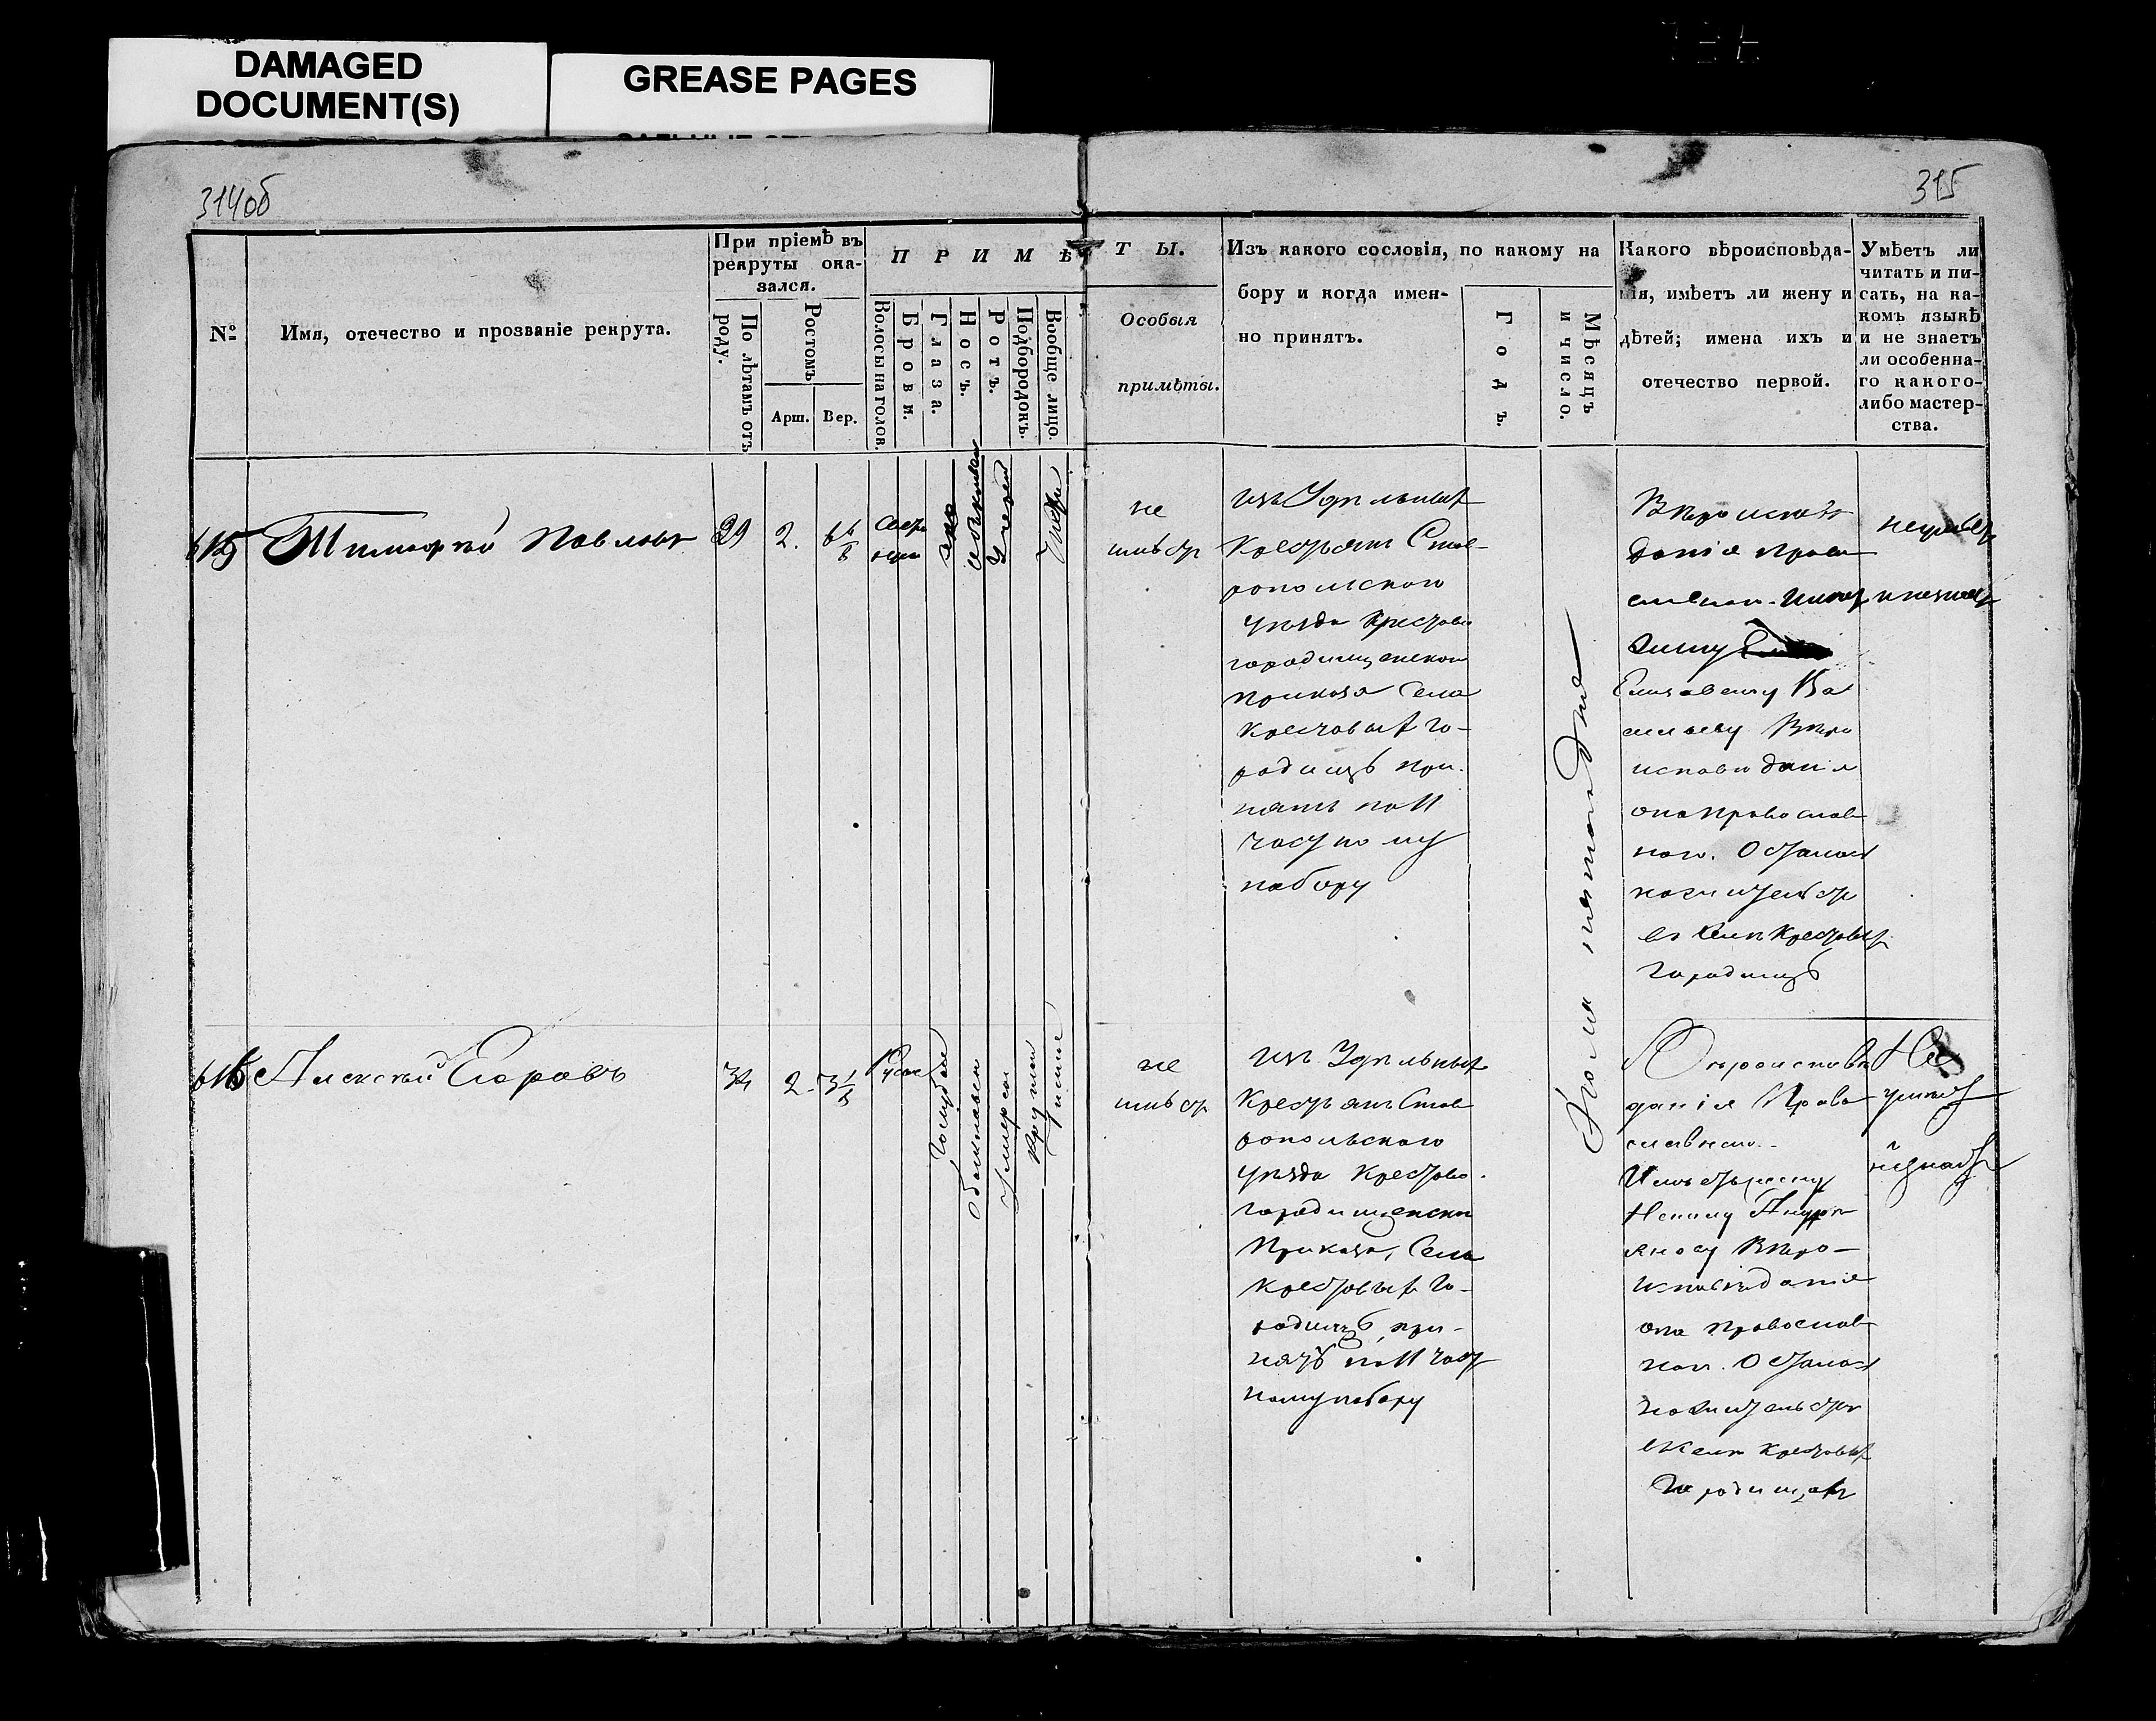 DAMAGED
DOCUMENT(S)
GREASE PAGES
314об
315
№
Имя, отечество и прозваніе рекрута.
При пріемѣ въ
рекруты ока-
зался.
По лѣтамъ отъ
роду.
Ростомъ
Арш.
Вер.
ПРИМѢ
Волосы на голов.
Брови.
Глаза.
Носъ.
Ротъ.
Подбородокъ.
Вообще лицо.
ТЫ.
Особыя
примѣты.
Изъ какого сословія, по какому на
бору и когда имен-
но принятъ.
Годъ.
Мѣсяцъ
и число.
Какого вѣроисповѣда-
нія, имѣетъ ли жену и
дѣтей; имена ихъ и
отечество первой.
Умѣетъ ли
читать и пи-
сать, на ка-
комъ языкѣ
и не знаетъ
ли особенна-
го какого-
либо мастер-
ства.
615
Тимофей Павловъ
29
2.
не
имѣетъ
изъ Удѣльныхъ
Крестьянъ Став-
ропольского
уѣзда Крестово
городищенского
приказа Села
Крестовыхъ Го-
родищъ при-
нятъ по 11
частному
набору
Вѣроисповѣ
данія Право
славнаго. Имѣетъ
жену
Елизавету Ва
сильеву Вѣро
исповѣданія
она православ
наго. Осталась
на жительстве
въ Селѣ Крестовыхъ
Городищъ
неумѣетъ
и незнаетъ
616
Алексѣй Егоровъ
34
2
Русые
Голубые
Обыкновен
Умерен
Круглой
Чистое
не
имѣетъ
изъ Удѣльныхъ
Крестьянъ Став
ропольского
уѣзда Крестово-
городищенского
Приказа, Села
Крестовыхъ Го-
родищъ, при-
нятъ по 11 част
ному набору
Вѣроисповѣ
данія Право
славнаго.
Имѣетъ жену
Вѣро-
исповѣданія
она православ
наго. Осталась
на жительстве
въ Селѣ Крестовыхъ
Городищахъ
Не
умѣетъ
незнаетъ